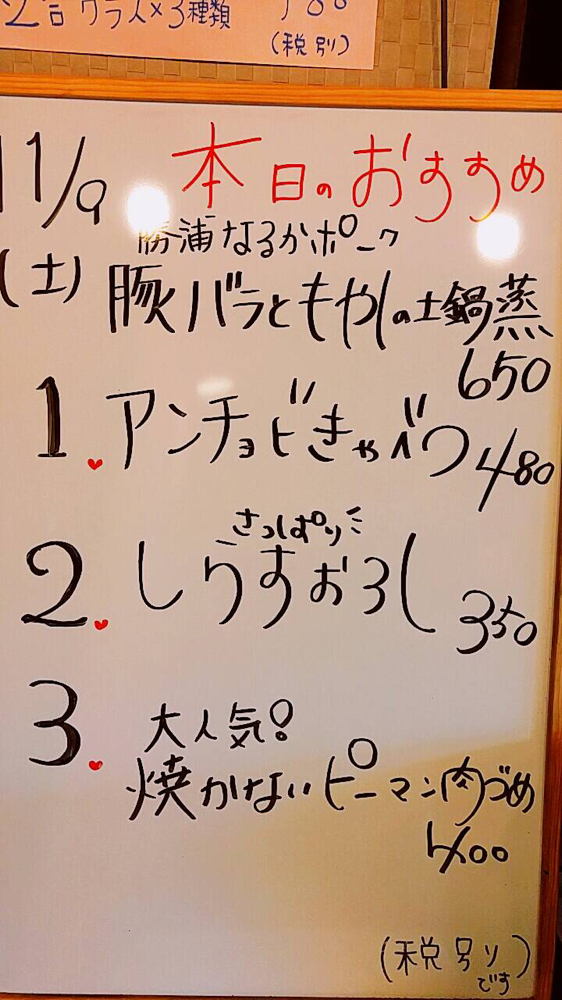 2合 グラス×3種類 780
(税別)
11/9 本日のおすすめ
(土)
勝浦なるかポーク
豚バラともやしの土鍋蒸
650
1. アンチョビきゃべつ 480
さっぱり
2. しらすおろし 350
3. 大人気!
焼かないピーマン肉づめ
400
(税別り
です)